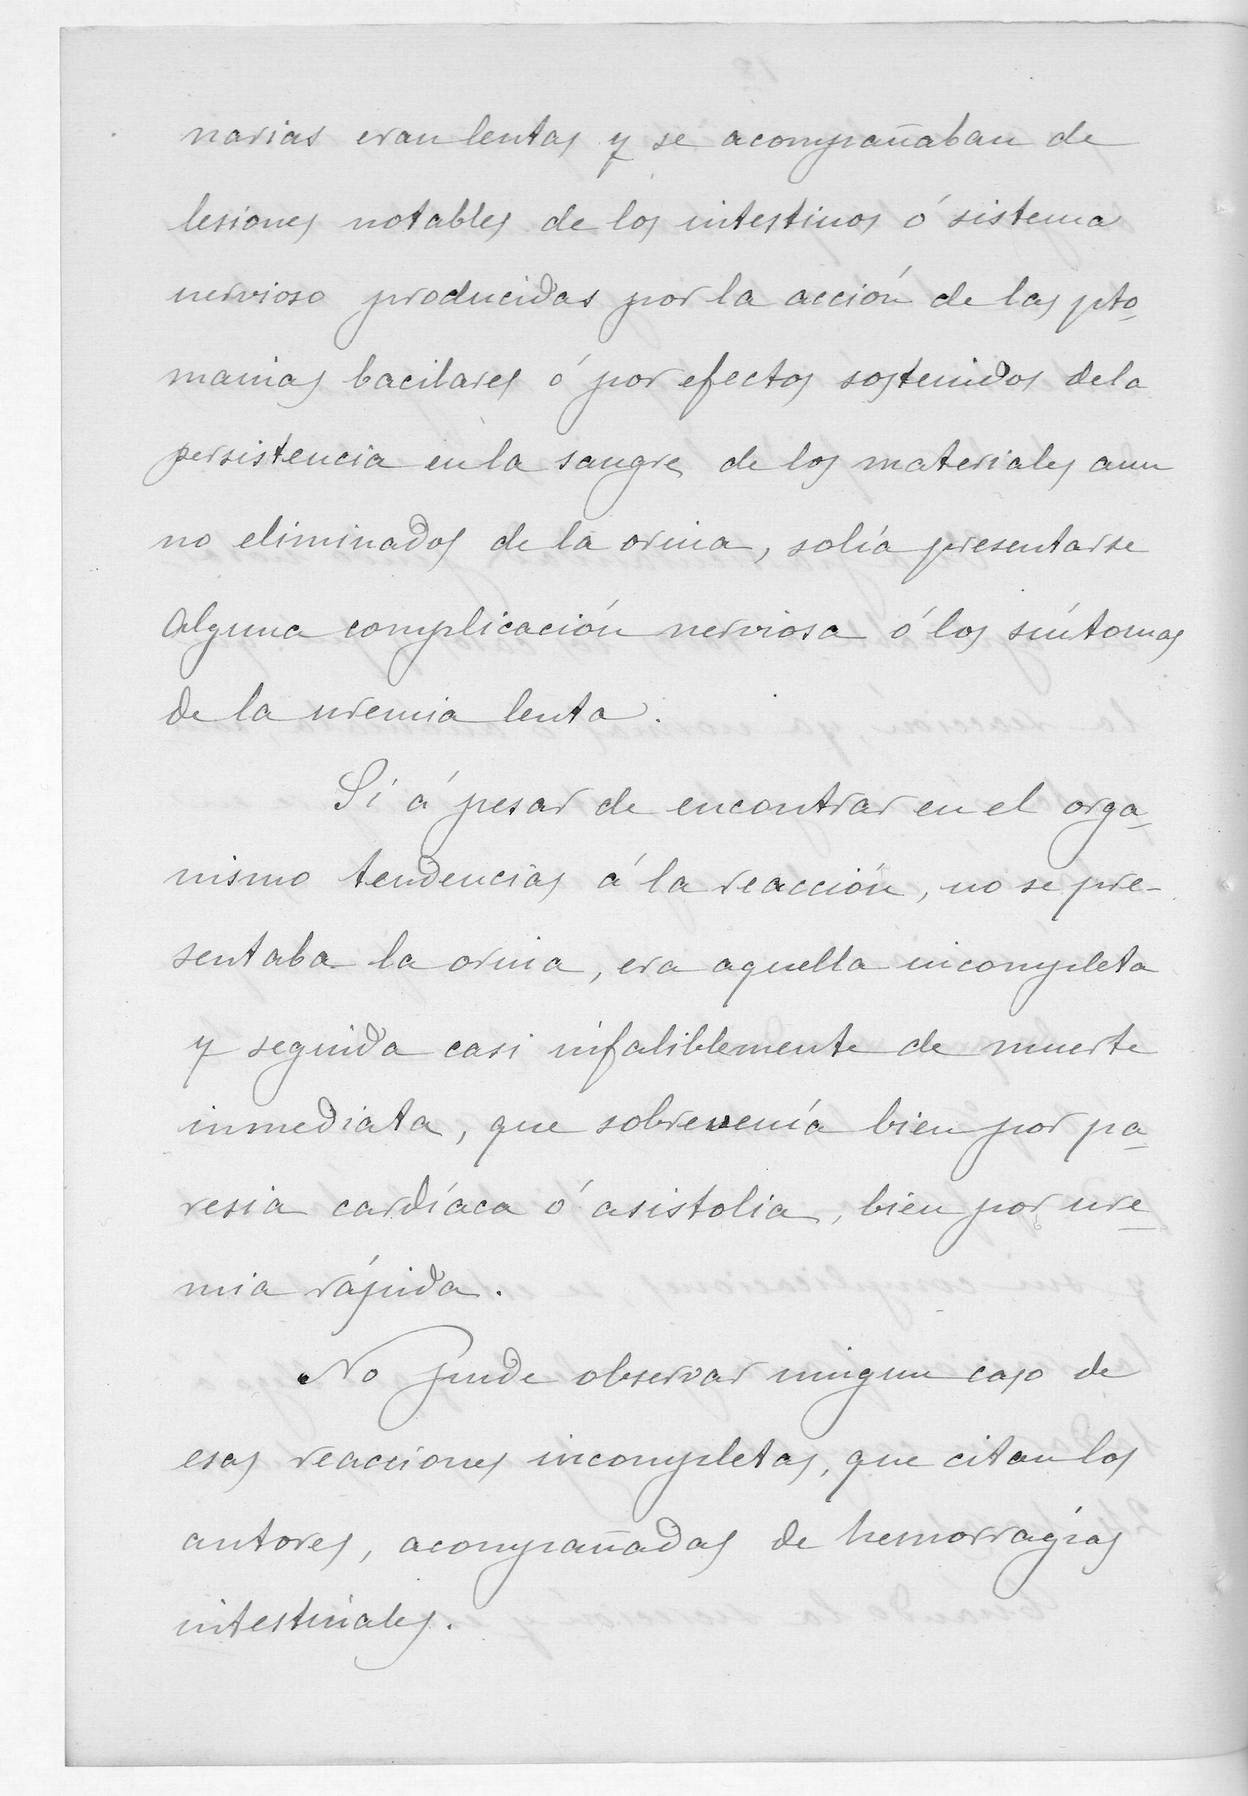 narias eran lentas y se acompañaban de
lesiones notables de los intestinos ó sistema
nervioso producidas por la acción de las pto-
mainas bacilares ó por efectos sostenidos de la
persistencia en la sangre de los materiales aun
no eliminados de la orina, solía presentarse
alguna complicación nerviosa ó los síntomas
de la uremia lenta.
Si á pesar de encontrar en el orga-
nismo tendencias á la reacción, no se pre-
sentaba la orina, era aquella incompleta
y seguida casi infaliblemente de muerte
inmediata, que sobrevenía bien por pa-
resia cardíaca ó asistolia, bien por ure-
mia rápida.
No pude observar ningun caso de
esas reacciones incompletas, que citan los
autores, acompañadas de hemorragias
intestinales.